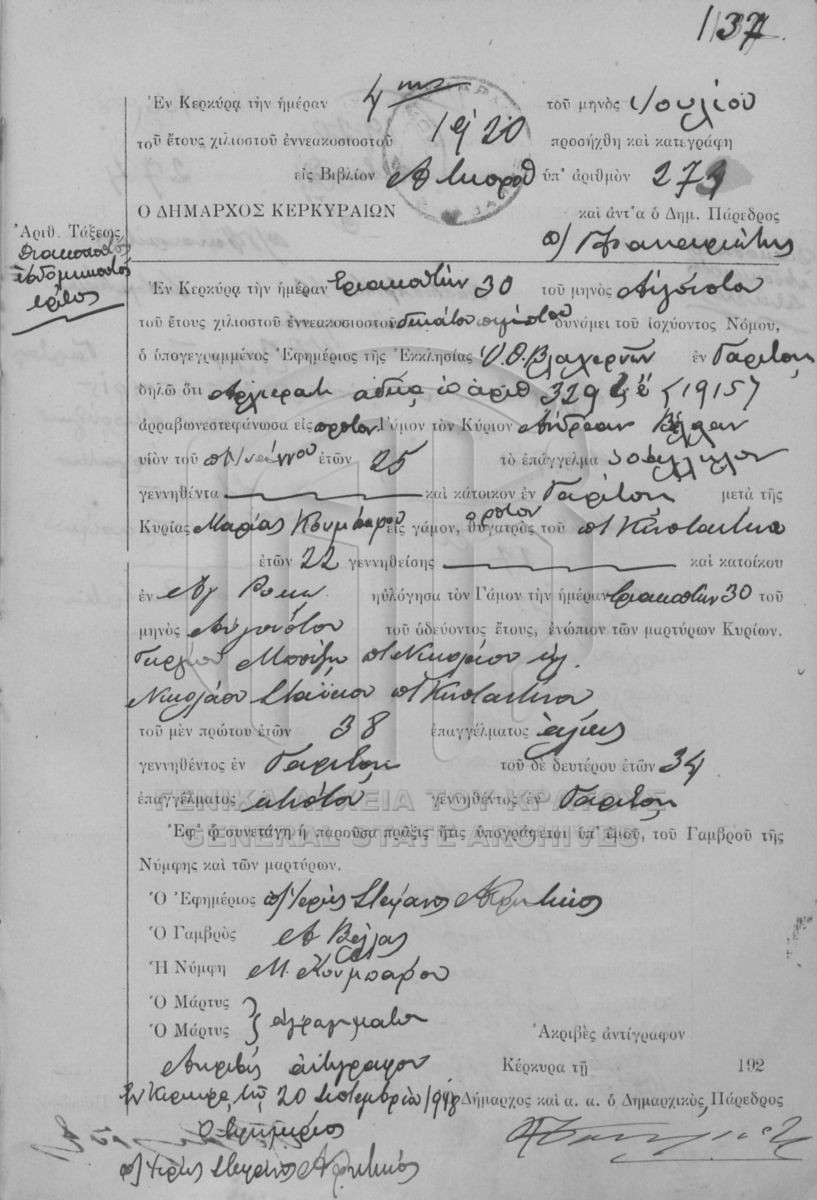 1137
Ἐν Κερκύρᾳ τὴν ἡμέραν 4 της τοῦ μηνὸς Ἰουλίου
τοῦ ἔτους χιλιοστοῦ ἐννεακοσιοστοῦ 1920 προσήχθη καὶ κατεγράφη
εἰς Βιβλίον ὑπ' ἀριθμὸν 273
Ο ΔΗΜΑΡΧΟΣ ΚΕΡΚΥΡΑΙΩΝ καὶ ἀντ'α ὁ Δημ. Πάρεδρος
Ἀριθ. Τάξεως
διακοσιοστὸς
ἑβδομηκοστὸς
τρίτος
Ἐν Κερκύρᾳ τὴν ἡμέραν τριακοστὴν 30 τοῦ μηνὸς Αὐγούστου
τοῦ ἔτους χιλιοστοῦ ἐννεακοσιοστοῦ δεκάτου πέμπτου δυνάμει τοῦ ἰσχύοντος Νόμου,
ὁ ὑπογεγραμμένος Ἐφημέριος τῆς Ἐκκλησίας Υ.Θ. Βλαχερνῶν ἐν Γαρίτσῃ
δηλῶ ὅτι ἀδείᾳ ὑπ ἀριθ 329 1915
ἀρραβωνεστεφάνωσα εἰς πρῶτον Γάμον τὸν Κύριον Ἀνδρέαν Βέλλαν
υἱὸν τοῦ π Ἰωάννου ἐτῶν 25 τὸ ἐπάγγελμα
γεννηθέντα καὶ κάτοικον ἐν Γαρίτσῃ μετὰ τῆς
Κυρίας Μαρίας Κουμπάρου εἰς πρῶτον γάμον, θυγατρὸς τοῦ π Κωσταντίνου
ἐτῶν 22 γεννηθείσης καὶ κατοίκου
ἐν Ἁγ Ρόκῳ ηὐλόγησα τὸν Γάμον τὴν ἡμέραν τριακοστὴν 30 τοῦ
μηνὸς Αὐγούστου τοῦ ὁδεύοντος ἔτους, ἐνώπιον τῶν μαρτύρων Κυρίων.
Γεωργίου π Νικολάου
Νικολάου Σταϊκου π Κωσταντίνου
τοῦ μὲν πρώτου ἐτῶν 38 ἐπαγγέλματος ἁλιεύς
γεννηθέντος ἐν Γαρίτσῃ τοῦ δὲ δευτέρου ἐτῶν 34
ἐπαγγέλματος γεννηθέντος ἐν Γαρίτσῃ
ΓΕΝΙΚΑ ΑΡΧΕΙΑ ΤΟΥ ΚΡΑΤΟΥΣ
GENERAL STATE ARCHIVES
Ἐφ' ᾧ συνετάγη ἡ παροῦσα πρᾶξις ἥτις ὑπογράφεται ὑπ' ἐμοῦ, τοῦ Γαμβροῦ τῆς
Νύμφης καὶ τῶν μαρτύρων.
Ὁ Ἐφημέριος Ἱερεὺς Στέφανος
Ὁ Γαμβρὸς Α Βέλλας
Ἡ Νύμφη Μ. Κουμπάρου
Ὁ Μάρτυς
Ὁ Μάρτυς ἀγράμματοι
Ἀκριβὲς ἀντίγραφον
Ἀκριβὲς ἀντίγραφον
Κέρκυρα τῇ 192
Ἐν Κερκύρᾳ τῇ 20 Σεπτεμβρίου
Δήμαρχος καὶ α. α. ὁ Δημαρχικὸς Πάρεδρος
Ὁ Ἐφημέριος
Ἱερεὺς Στέφανος